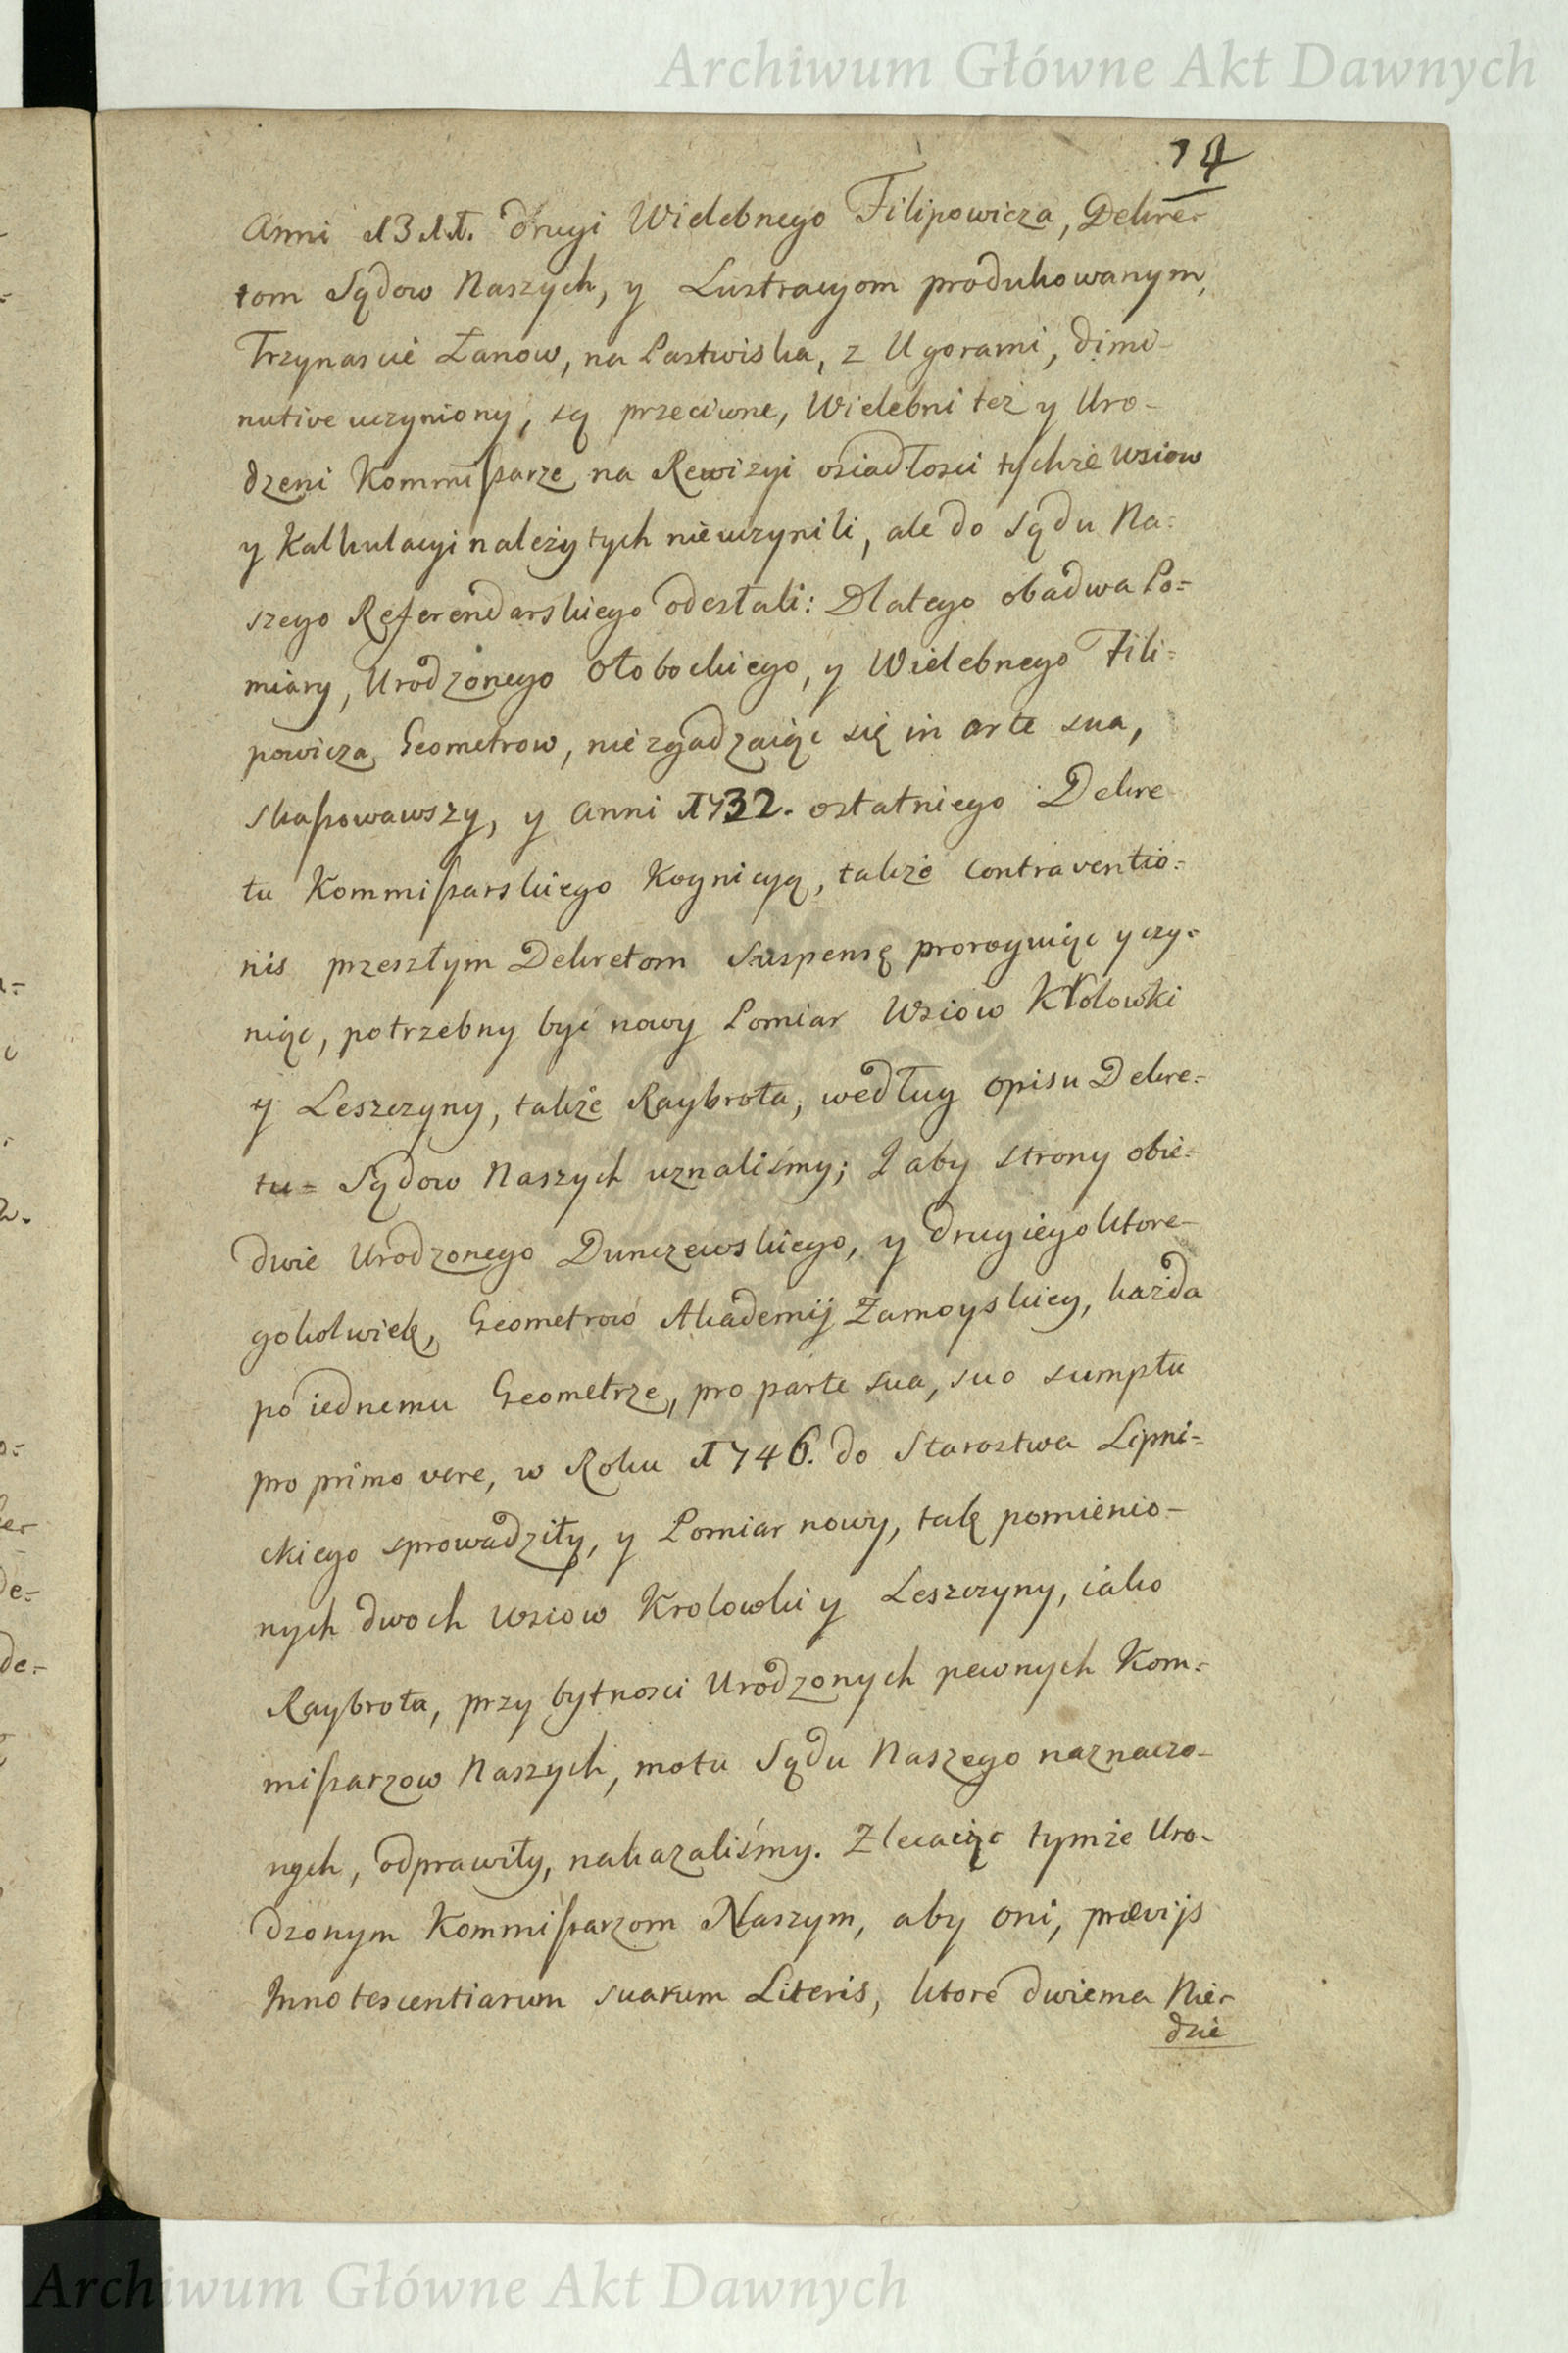 Archiwum Główne Akt Dawnych
14
Anni 1311. drugi Wielebnego Filipowicza, Dekre-
tom Sądow Naszych, y Lustracyom produkowanym,
Trzynascie Łanow, na Pastwiska, z Ugorami, dimi-
nutive uczyniony, są przeciwne, Wielebni też y Uro-
dzeni Kommissarze na Rewizyi osiadłosci tychże wsiow
y Kalkulacyi należytych nieuczynili, ale do Sądu Na=
szego Referendarskiego odesłali: Dlatego obadwa Po=
miary, Urodzonego Ołobockiego, y Wielebnego Fili=
powicza Geometrow, niezgadzaiąc się in arte sua,
skassowawszy, y Anni 1732. ostatniego Dekre
tu Kommissarskiego Kognicyą, także Contraventio=
nis przeszłym Dekretom Suspensę proroguiąc y czy=
niąc, potrzebny być nowy Pomiar Wsiow Krolowki
y Leszczyny, także Raybrota, według opisu Dekre=
tu= Sądow Naszych uznaliśmy; I aby strony obie=
dwie Urodzonego Dunczewskiego, y drugiego ktore-
gokolwiek, Geometrow Akademij Zamoyskiey, każda
po iednemu Geometrze, pro parte sua, suo sumptu
pro primo vere, w Roku 1746. do Starostwa Lipni=
ckiego sprowadziły, y Pomiar nowy, tak pomienio-
nych dwoch wsiow Krolowki y Leszczyny, iako
Raybrota, przy bytnosci Urodzonych pewnych Kom=
missarzow Naszych, motu Sądu Naszego naznaczo-
nych, odprawiły, nakazaliśmy. Zlecaiąc tymże Uro-
dzonym Kommissarzom Naszym, aby oni, prævijs
Innotescentiarum suarum Literis, ktore dwiema Nie-
dzie
Archiwum Główne Akt Dawnych